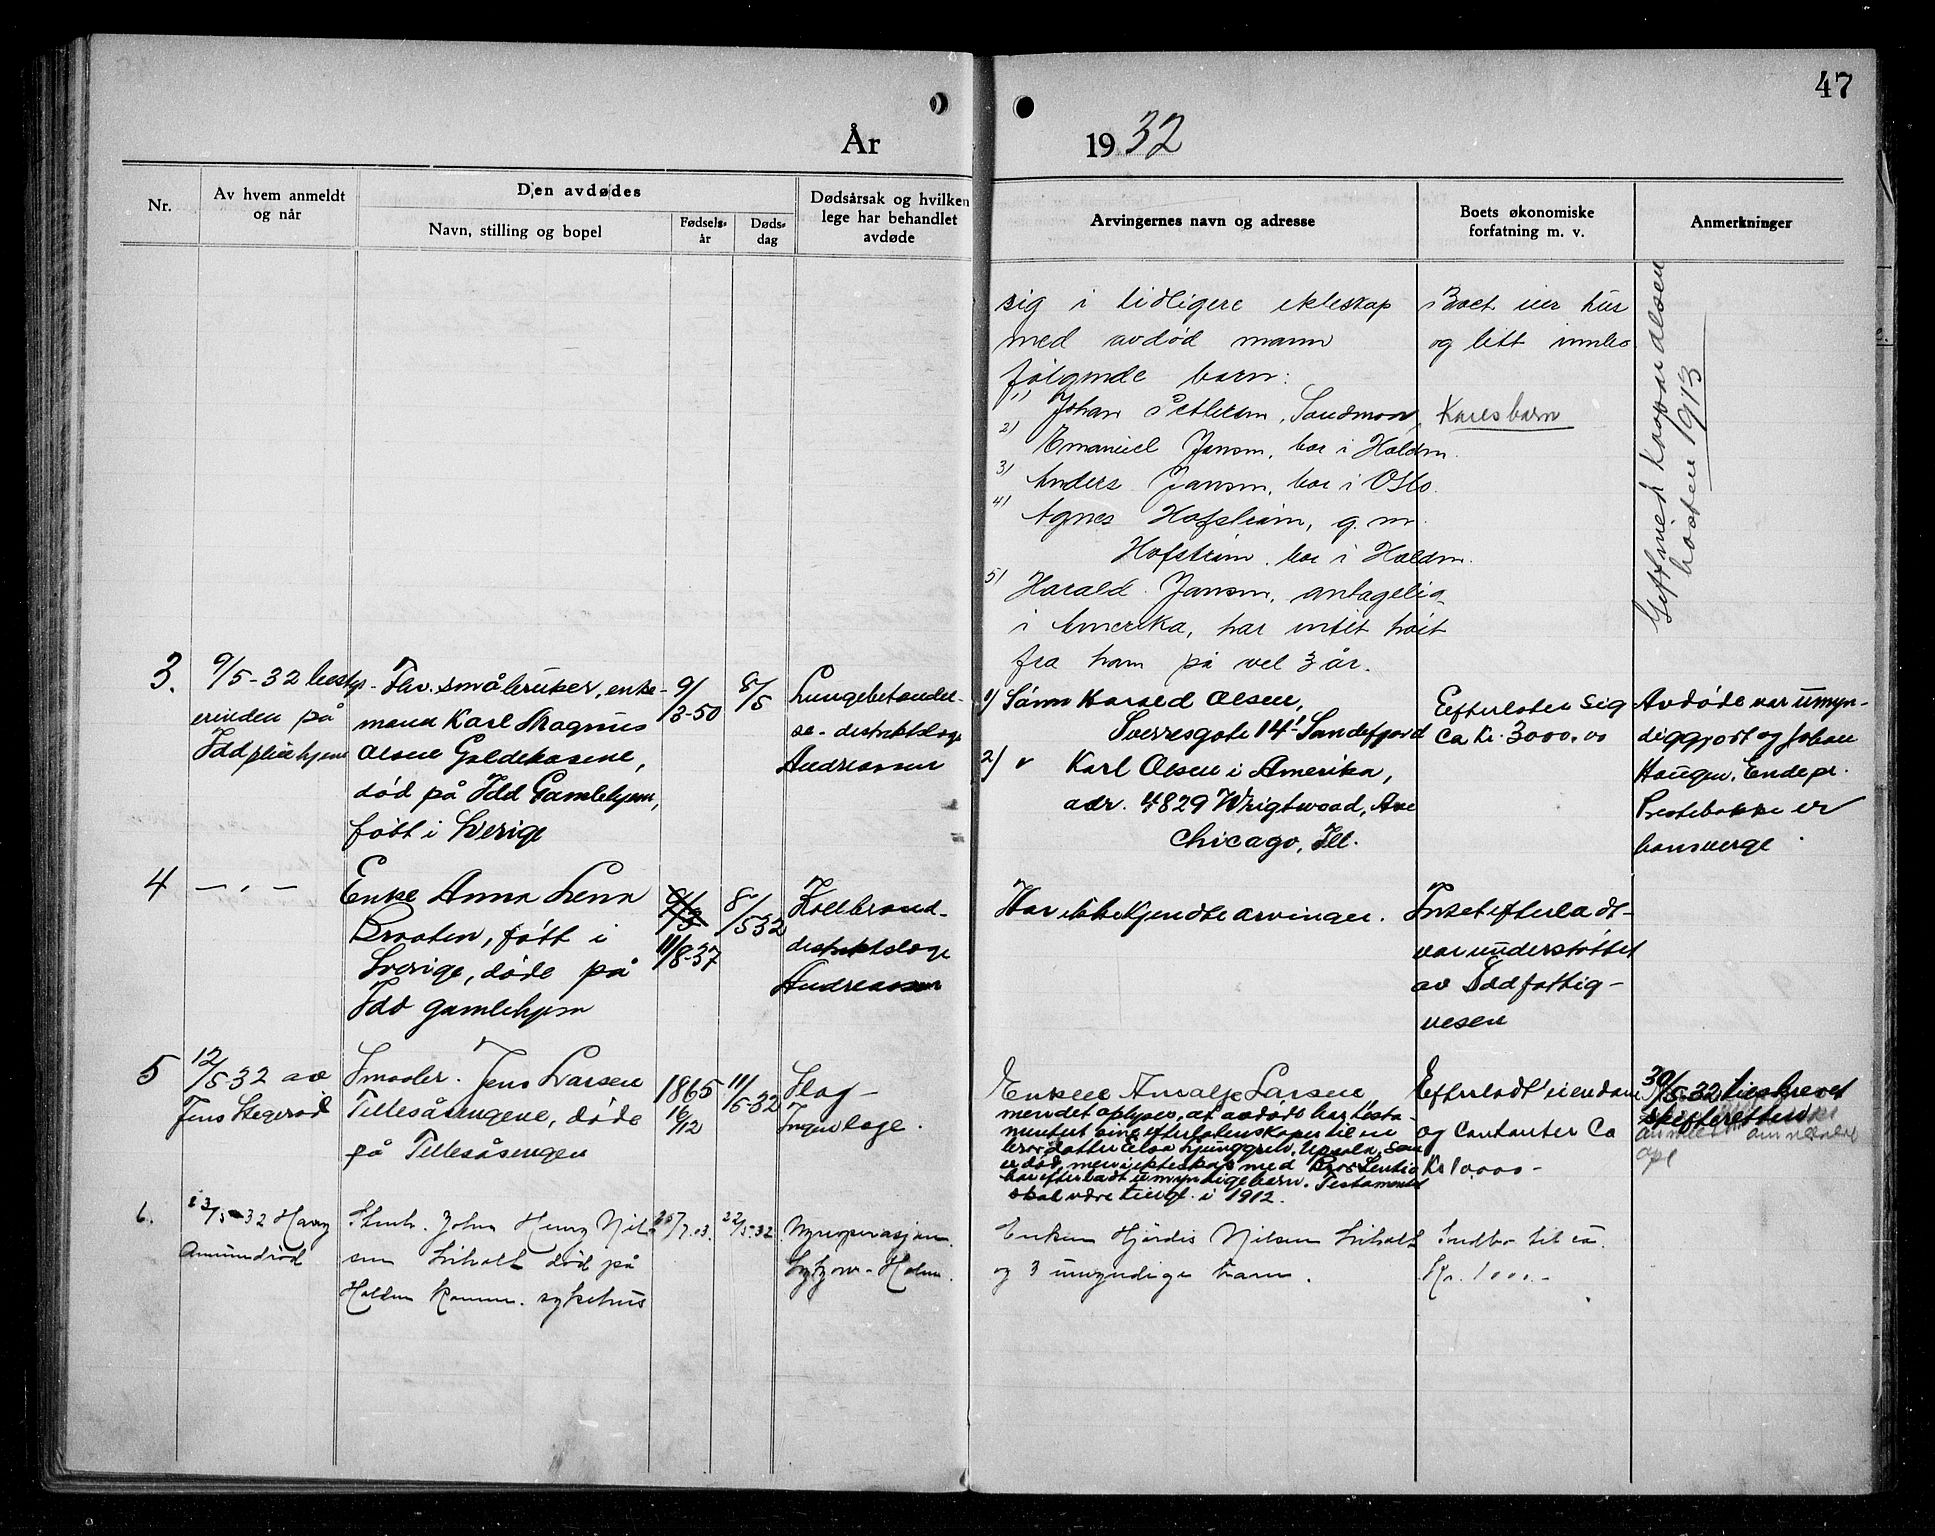 47
År 1932
Nr.
Av hvem anmeldt
og når
Den avdødes
Navn, stilling og bopel
Fødsels-
år
Døds-
dag
Dødsårsak og hvilken
lege har behandlet
avdøde
Arvingernes navn og adresse
Boets økonomiske
forfatning m. v.
Anmerkninger
sig i tidligere ekteskap
med avdød mann
følgende barn:
1) Johan Petersen, Sandmoen,
2) Emanuel Jansen, bor i Halden.
3) Anders Jansen, bor i Oslo.
4) Agnes Hofstrøm, g. m.
Hofstrøm, bor i Halden.
5) Harald Jansen, antagelig
i Amerika, har intet hørt
fra ham på vel 3 år.
Boet eier hus
og litt innbo
Kares barn
høsten 1913
3.
9/5-32 besty-
erinden på
Idd pleiehjem
Fhv. småbruker, enke-
mann Karl Magnus
Olsen Goldekasene,
død på Idd Gamlehjem,
født i Sverige
9/
3-50
8/5
Lungebetender-
se - distriktslege
Andreassen
1) Sønn Harald Olsen,
Sverresgate 14 Sandefjord
2) " Karl Olsen i Amerika,
adr. 4829 Wrigtwood, Ave
Chicago, Ill.
Efterlater sig
Ca Kr. 3000.00
Avdøde var umyn-
diggjort og Johan
Haugen, Ende pr.
Prestebakke er
hans verge.
4
— " —
Enke Anna Lena
Braaten, født i
Sverige, døde på
Idd gamlehjem
9/3
11/8-37
8/
5 32
Koldbrand-
distriktslege
Andreassen
Har ikke kjendte arvinger.
Intet efterladt-
var understøttet
av Idd fattig-
vesen
5
12/5-32 av
Jens Stegerød
Smaabr. Jens Larsen
Tillesåsengene, døde
på Tillesåsengen
1865
16/12
11/5-32
Slag-
lege.
Enken Amalje Larsen,
men det oplyses, at avdøde har testa-
mentert sine efterlatenskaper til en
brordatter Elsa Ljunggren, Upsala, som
er død, men i ekteskap med
har efterladt umyndige barn. Testamentet
skal være tingl. i 1912.
Efterladt eiendom
og Contanter Ca
Kr 10,000-
30/5-32 tilskrevet
skifteretten
6.
23/5-32 Harry
Amundrød
John Henry Nil-
sen Liholt død på
Halden komm. sykehus
25/7.03.
22/5.32
Nyreoperasjon.
Enken Hjørdis Nilsen Liholt
og 3 umyndige barn.
Indbo til ca.
Kr. 1000.-